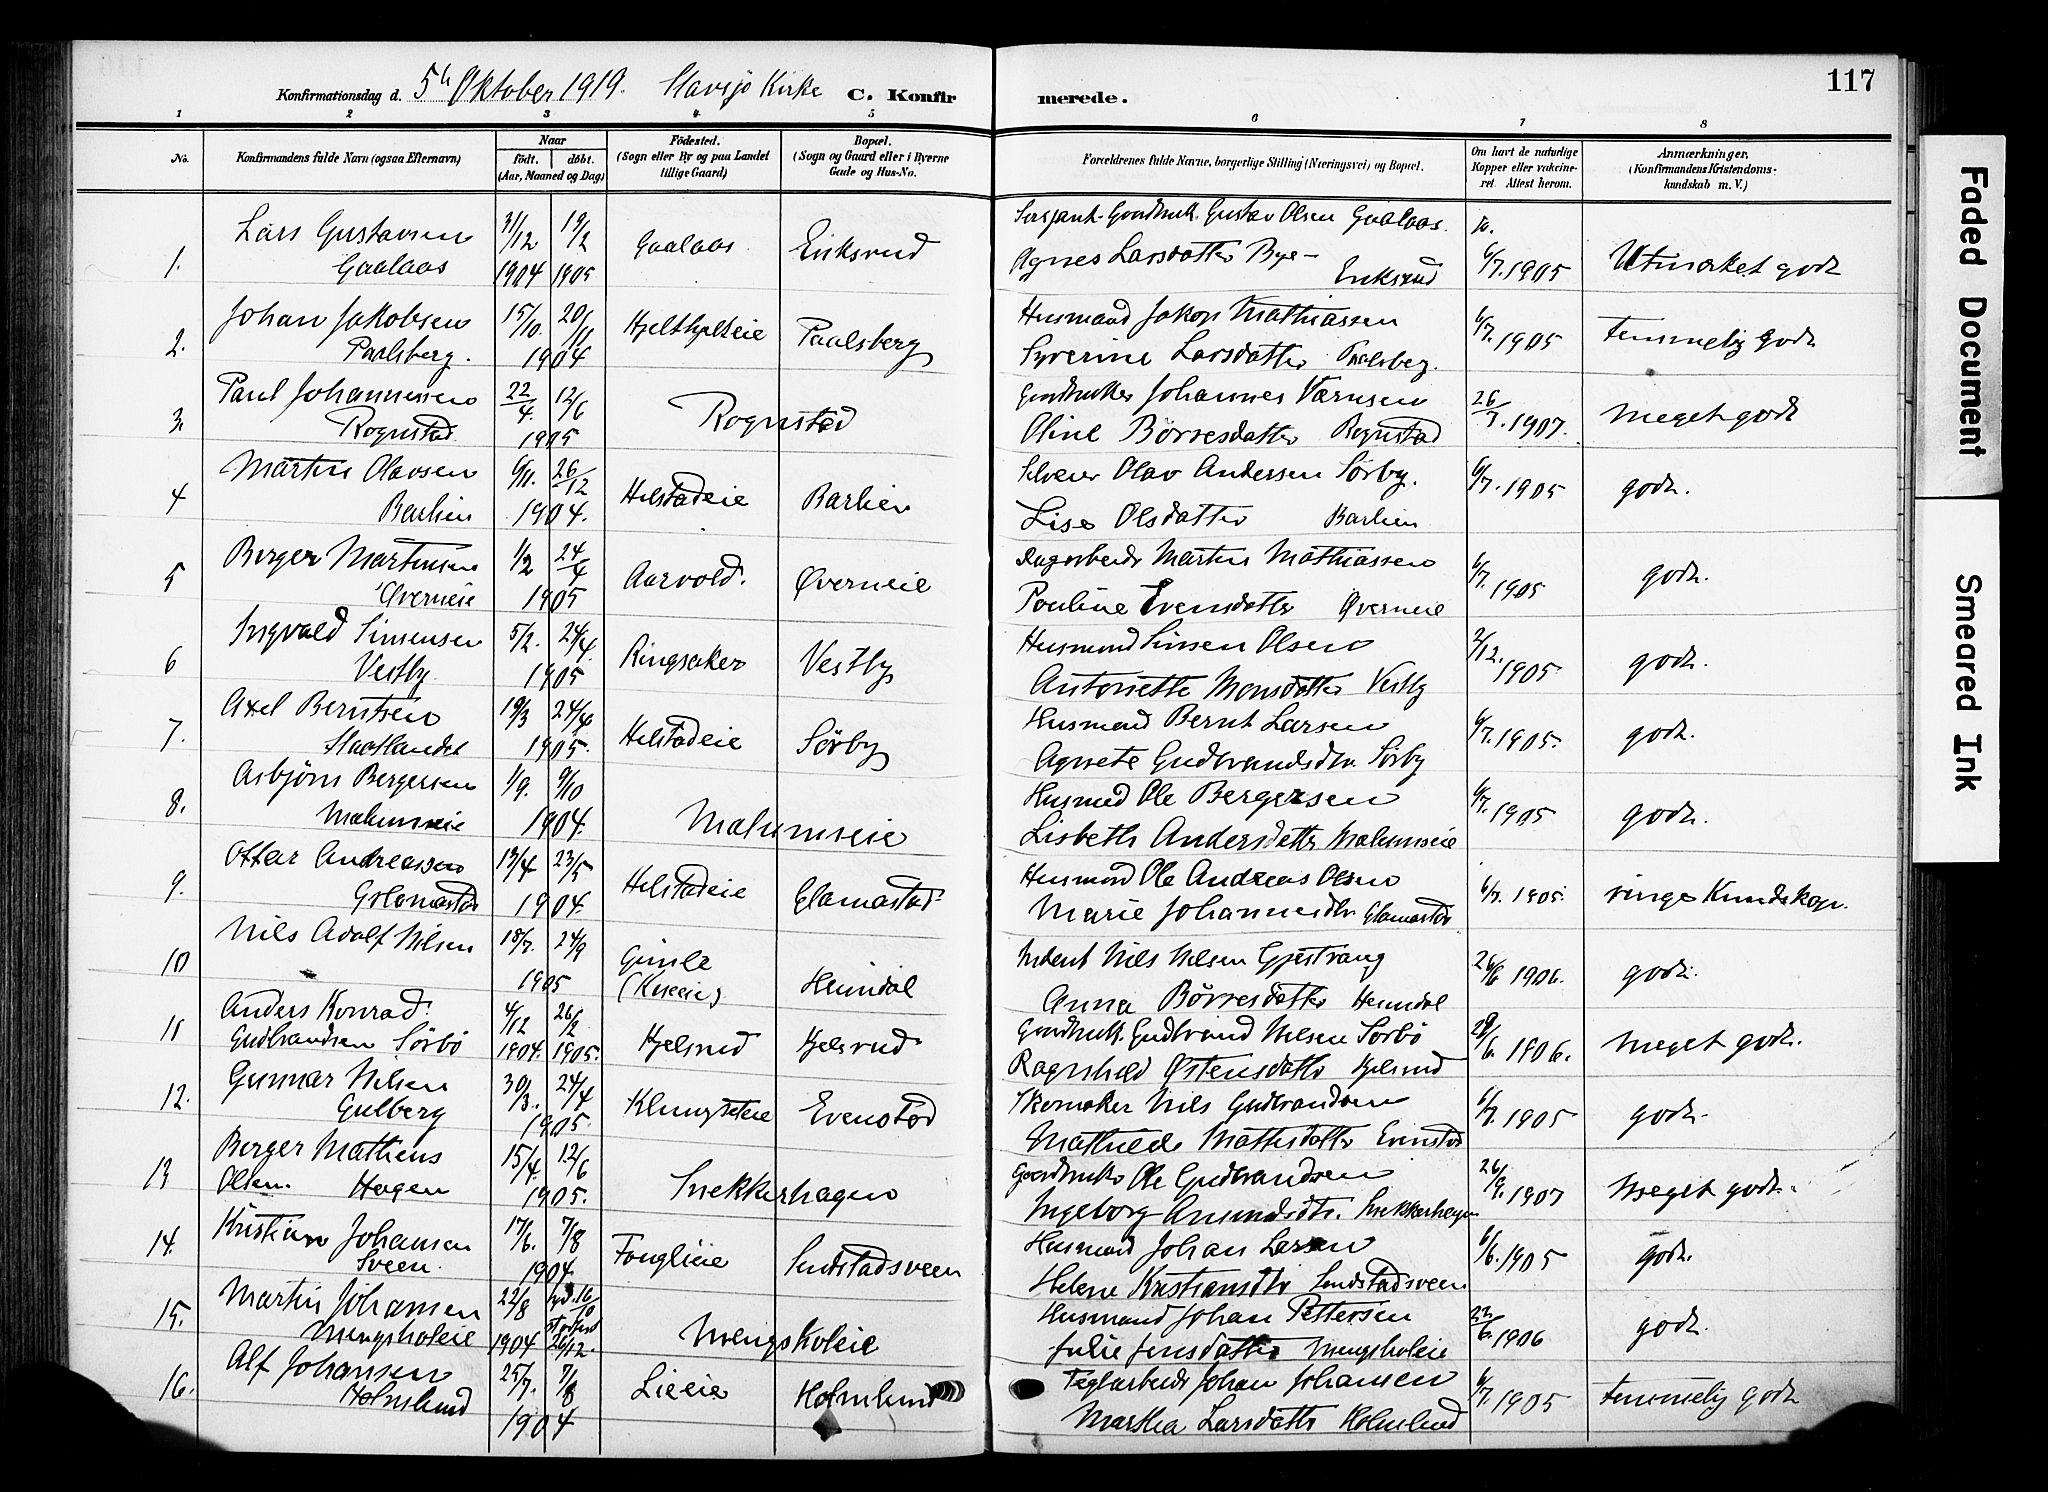 117
Konfirmationsdag d. 5te Oktober 1919. Stavsjø Kirke C. Konfirmerede.
1 2 3 4 5 6 7 8
No. Konfirmandens fulde Navn (ogsaa Efternavn) Naar født. døbt. (Aar, Maaned og Dag) Fødested. (Sogn eller By og paa Landet tillige Gaard) Bopæl. (Sogn og Gaard eller i Byerne Gade og Hus-No. Forældrenes fulde Navne, borgerlige Stilling (Næringsvei) og Bopæl. Om havt de naturlige Kopper eller vakcineret. Attest herom. Anmærkninger. (Konfirmandens Kristendomskundskab m. V.)
Lars Gustavsen 31/12 19/2 Sersjant-Gaardbruk. Gustav Olsen Gaalaas
1. Gaalaas 1904 1905 Gaalaas Eriksrud Agnes Larsdatter Bye - Eriksrud 6/7. 1905 Utmærket godt
Johan Jakobsen 15/10. 20/11 Husmand Jakop Mathiassen
2. Paalsberg. 1904 Paalsberg Syverine Larsdatter Paalsberg. 6/7. 1905 Temmelig godt
Paul Johannessen 22/4. 12/6 Gaardbruker Johannes Varnsen
3. Rognstad 1905 Rognstad Oline Børresdatter Rognstad 26/7. 1907. Meget godt
Martin Olavsen 6/11. 26/12 Selveier Olav Andersen Sørby.
4 Barlien 1904. Helstadeie Barlien Lise Olsdatter Barlien 6/7. 1905 godt.
Berger Martinsen 1/2 24/4 Dagarbeider Martin Mathiassen
5 Øverneie 1905 Aarvold. Øverneie Pauline Evensdatter Øverneie 6/7. 1905 godt.
Ingvald Simensen 5/2. 24/4. Husmand Simen Olsen
6 Vestby. 1905 Ringsaker Vestby Antonette Monsdatter Vestby 2/12. 1905 godt.
Axel Berntsen 19/3 24/4 Husmand Bernt Larsen
7. Slaatlandet 1905. Helstadeie Sørby Agnete Gudbrandsdtr. Sørby 6/7. 1905. godt.
Asbjørn Bergersen 1/9. 9/10 Husmand Ole Bergersen
8. Malumseie 1904. Malumseie Lisbeth Andersdatter Malumseie 6/7. 1905 godt.
Ottar Andreassen 13/4 23/5 Husmand Ole Andreas Olsen
9. Glamastad 1904. Helstadeie Glamastad Marie Johannesdtr. Glamastad 6/7. 1905. ringe Kundskap.
Nils Adolf Nilsen 18/7. 24/9 Nils Nilsen Gjestvang
10 1905 Gimle (Keseie) Heimdal Anna Børresdatter Heimdal 26/6 1906. godt.
Anders Konrad 4/12 26/2
11 Gudbrandsen Sörbö 1904. 1905. Kjelsrud Kjelsrud Gaardbruk. Gudbrand Nilsen Sørbø 29/6. 1906. Meget godt.
Ragnhild Østensdatter Kjelsrud
Gunnar Nilsen 30/3. 24/4 Skomaker Nils Gudbrandsen
12. Gulberg 1905. Evenstad Mathilde Mathisdatter Evenstad 6/7. 1905 godt.
Berger Matheus 15/4. 12/6 Gaardbruker Ole Gudbrandsen
13 Olsen. Hagen 1905. Snekkerhagen Ingeborg Amundsdtr. Snekkerhagen 26/9. 1907 Meget godt.
Kristian Johansen 17/6. 7/8 Husmand Johan Larsen
14. Sveen. 1904 Fonglieie Sundstadsveen Helene Kristiansdtr Sundstadsveen 6/6. 1905 godt.
Martin Johansen 22/8 16/10 Husmand Johan Pettersen
15. Mengskoleie 1904 26/12. Mengskoleie Julie Jensdatter Mengskoleie 22/6. 1906 godt.
Alf Johansen 25/7. 7/8 Teglarbeider Johan Johansen
16. Holmlund 1904 Lieeie Holmlund Martha Larsdatter Holmlund 6/7. 1905 Temmelig godt
Faded Document
Smeared Ink